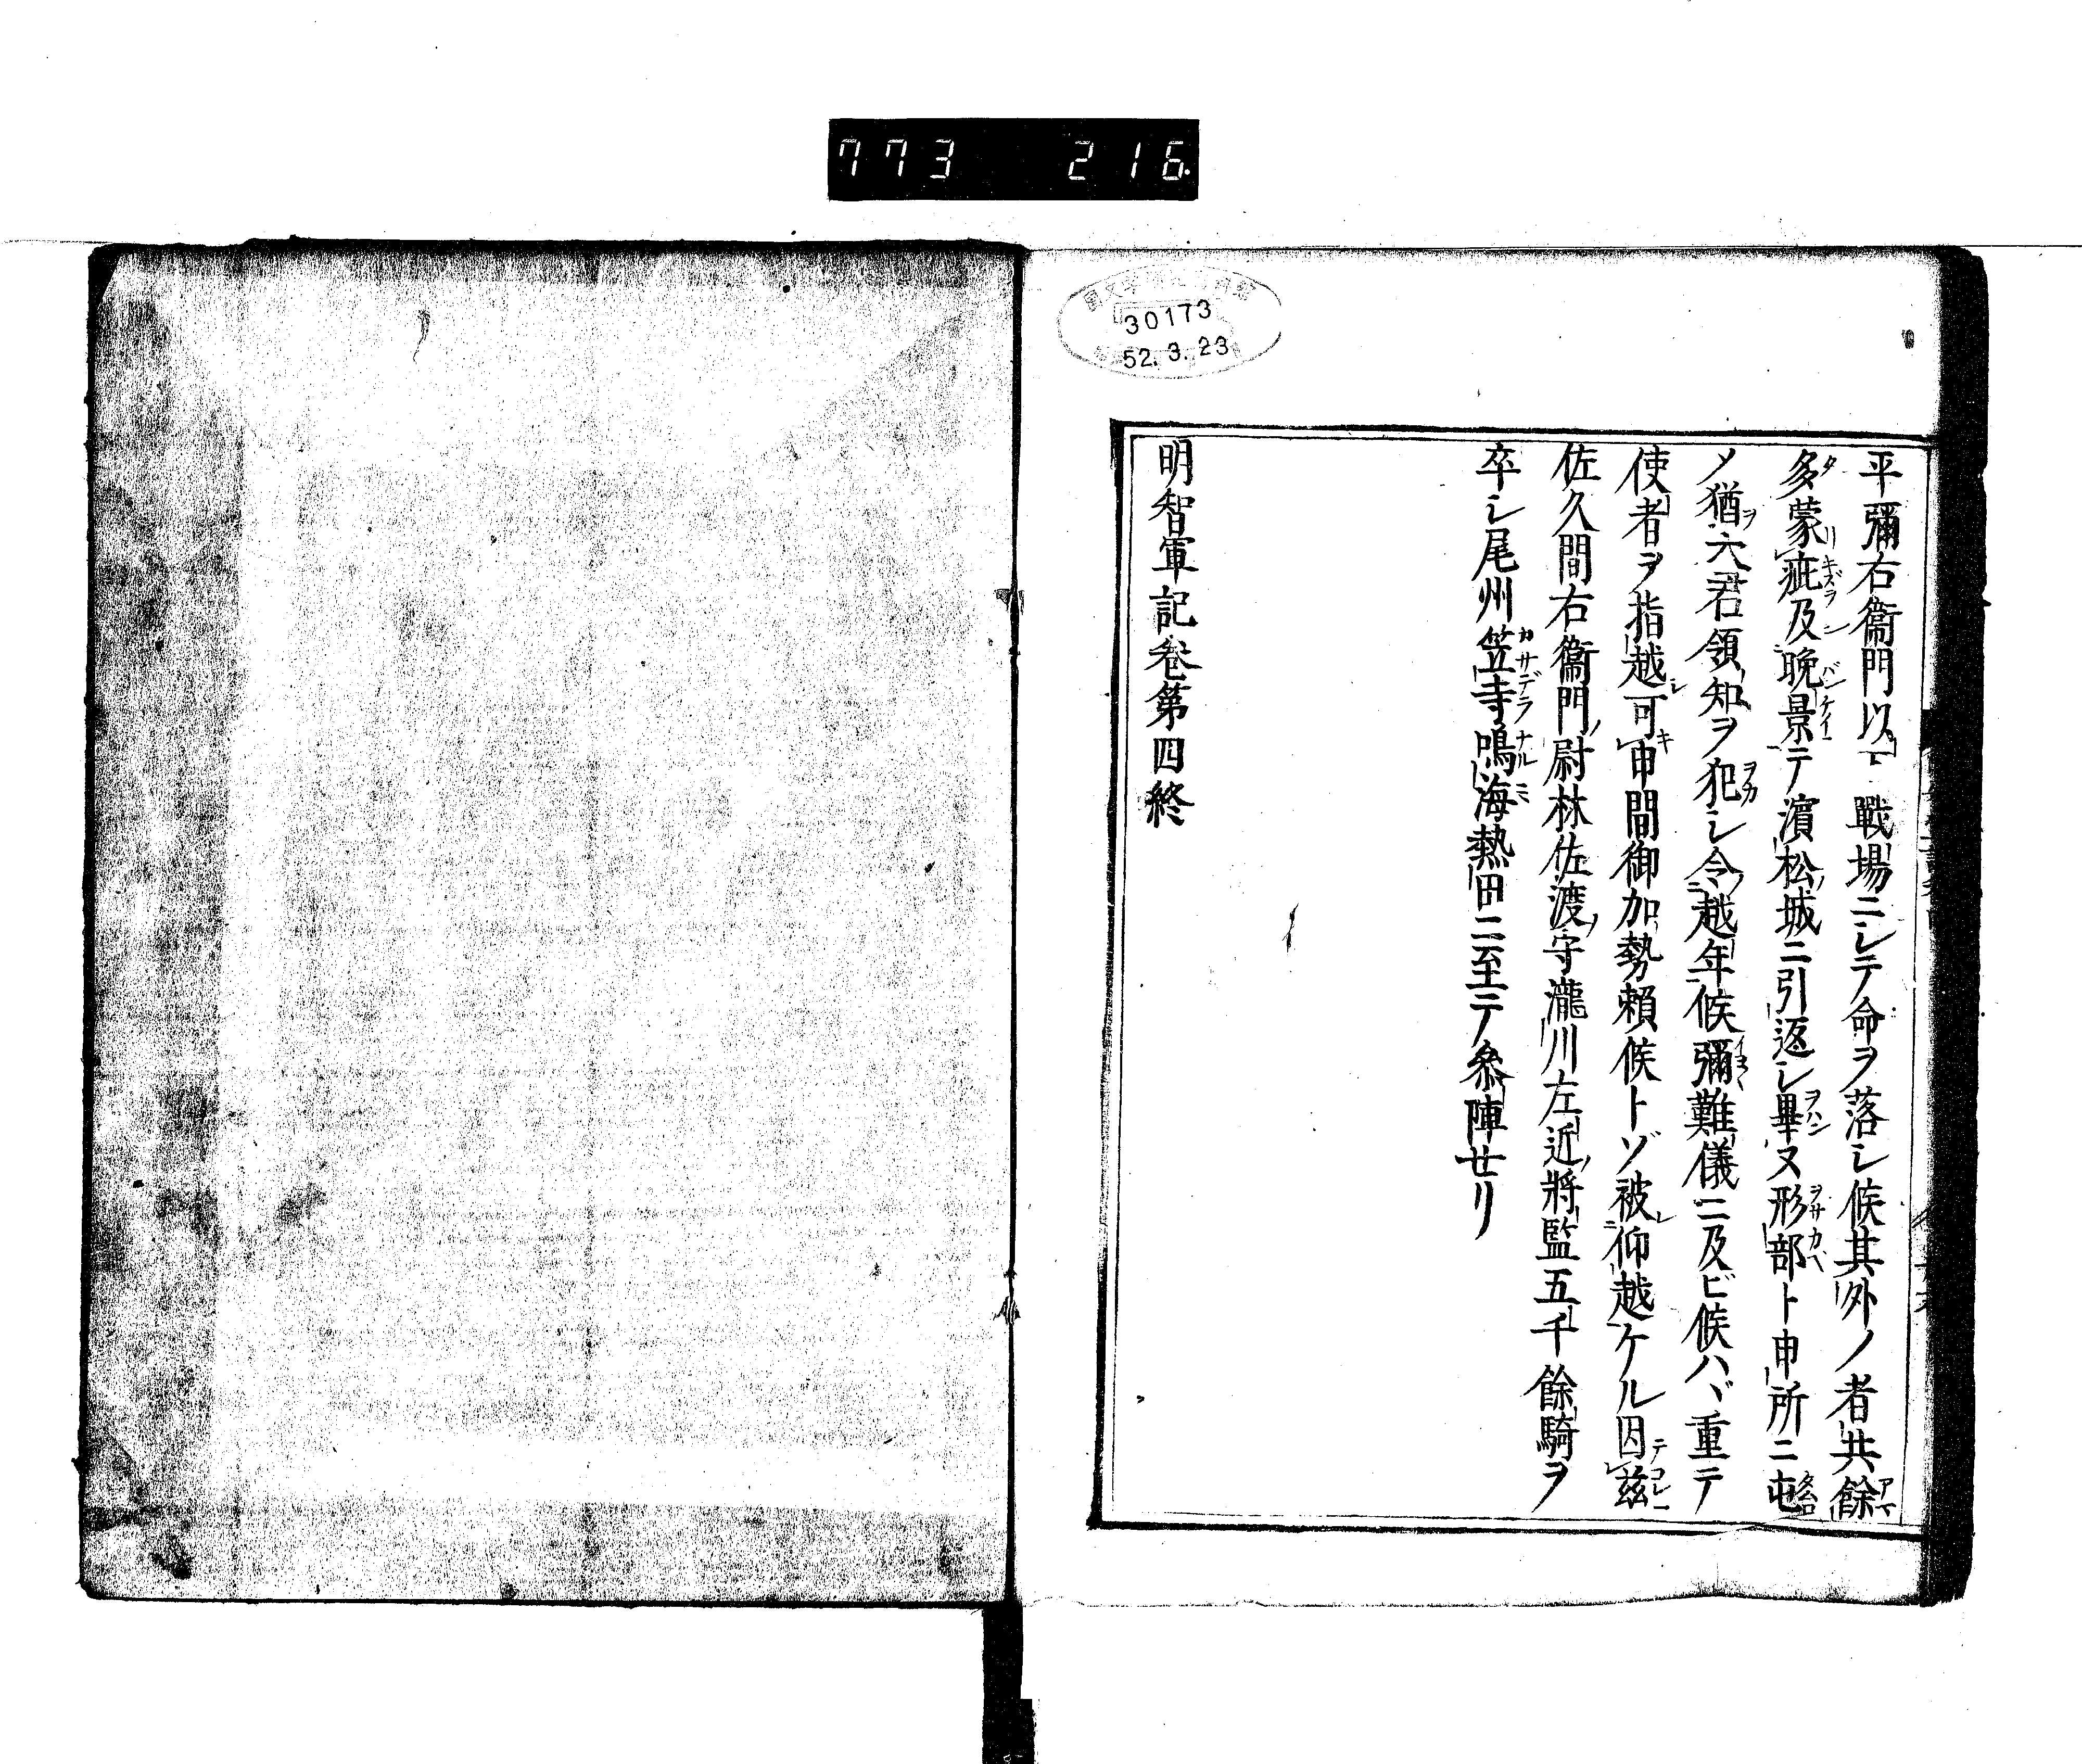 773 216
30173
52.3.23
平彌右衞門以下戰場ニシテ命ヲ落シ候其外ノ者共餘
多蒙疵及晩景テ濱松城ニ引返シ畢ヌ形部ト申所ニ屯
メ猶六君領知ヲ犯シ令越年候彌難儀ニ及ビ候ハヾ重テ
使者ヲ指越可申間御加勢賴候トゾ被仰越ケル因玆
佐久間右衞門尉林佐渡守瀧川左近將監五千餘騎ヲ
卒シ尾州笠寺鳴海熱田ニ至テ參陣せリ
明智軍記卷第四終